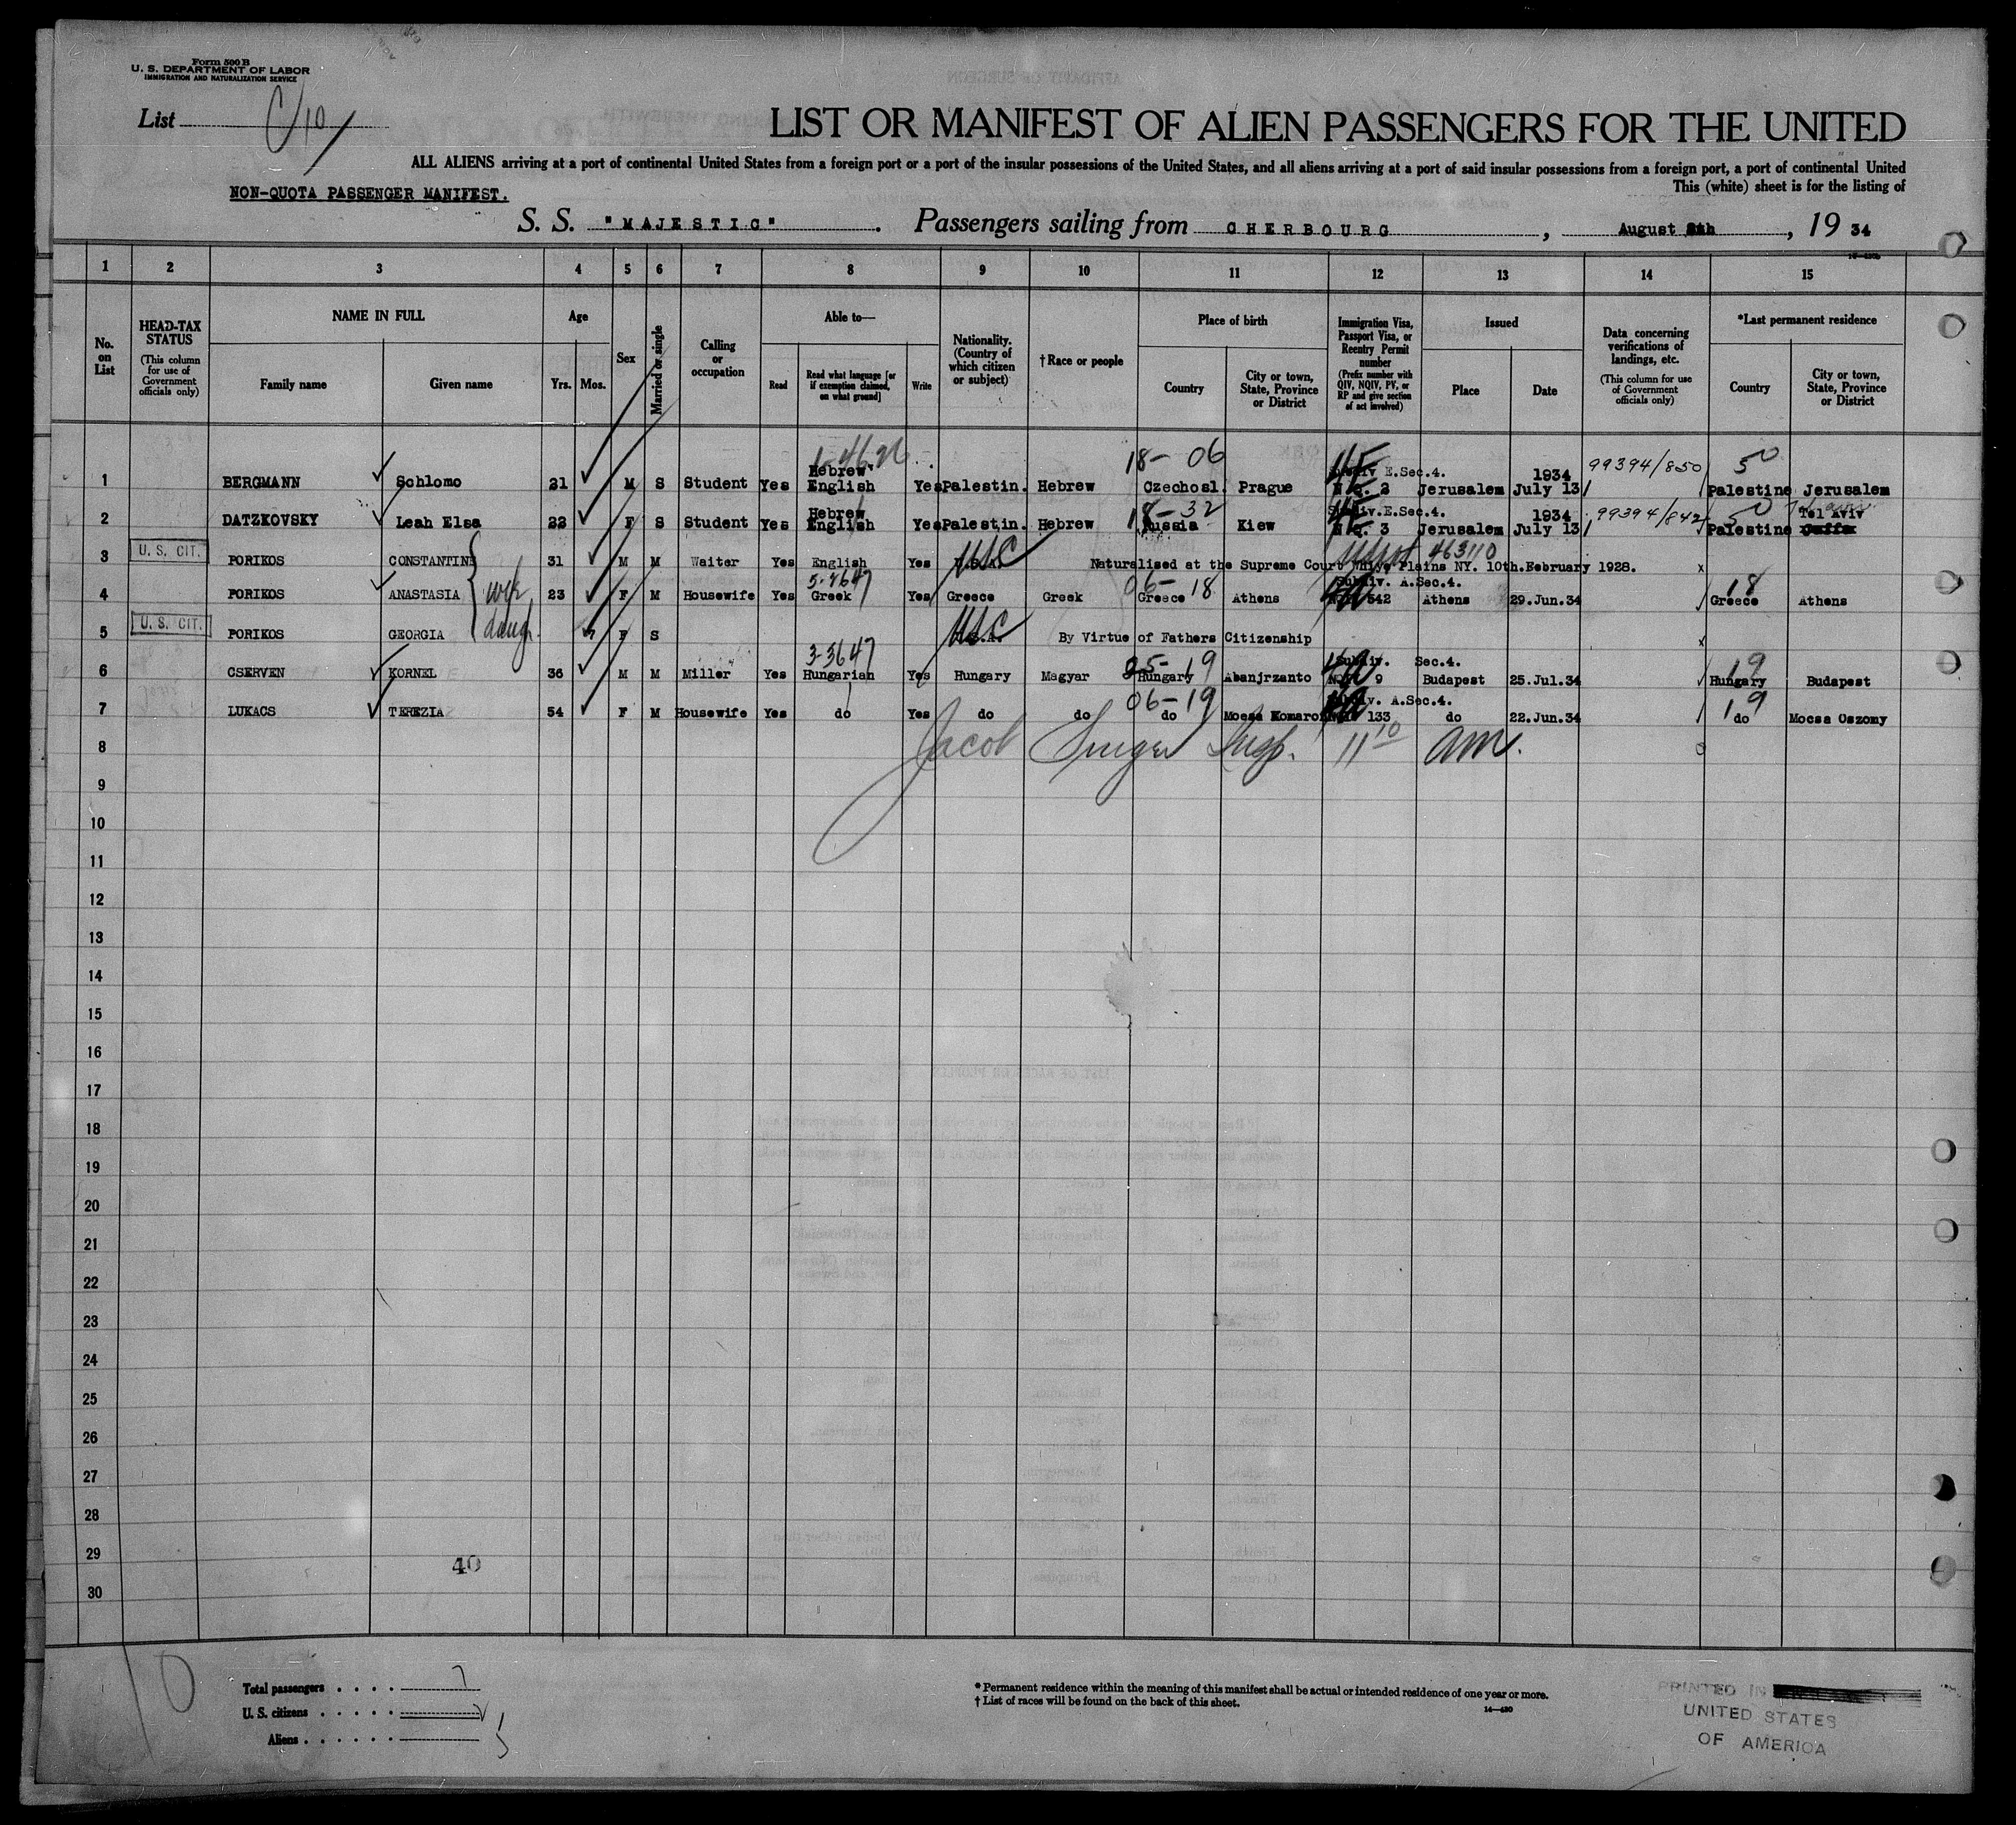 Form 500 B
U. S. DEPARTMENT OF LABOR
IMMIGRATION AND NATURALIZATION SERVICE
List C/10
LIST OR MANIFEST OF ALIEN PASSENGERS FOR THE UNITED
ALL ALIENS arriving at a port of continental United States from a foreign port or a port of the insular possessions of the United States, and all aliens arriving at a port of said insular possessions from a foreign port, a port of continental United
This (white) sheet is for the listing of
NON-QUOTA PASSENGER MANIFEST.
S. S. "MAJESTIC". Passengers sailing from CHERBOURG, August, 19 34
1 2 3 4 5 6 7 8 9 10 11 12 13 14 15
No. on List
HEAD-TAX STATUS
(This column for use of Government officials only)
NAME IN FULL
Family name
Given name
Age
Yrs. Mos.
Sex
Married or single
Calling or occupation
Able to—
Read
Read what language [or if exemption claimed, on what ground]
Write
Nationality. (Country of which citizen or subject)
†Race or people
Place of birth
Country
City or town, State, Province or District
Immigration Visa, Passport Visa, or Reentry Permit number
(Prefix number with QIV, NQIV, PV, or RP and give section of act involved)
Issued
Place
Date
Data concerning verifications of landings, etc.
(This column for use of Government officials only)
*Last permanent residence
Country
City or town, State, Province or District
1-4626 18- 06 99394/850 50
1 BERGMANN Schlomo 21 M S Student Yes Hebrew English Yes Palestin. Hebrew Czechosl. Prague E.Sec.4. 2 Jerusalem 1934 July 13 Palestine Jerusalem
2 DATZKOVSKY Leah Elsa 22 F S Student Yes Hebrew English Yes Palestin. Hebrew 18-32 Russia Kiew E.Sec.4. 3 Jerusalem 1934 July 13 99394/842 50 Palestine Tel Aviv
3 U. S. CIT. PORIKOS CONSTANTINE 31 M M Waiter Yes English Yes USC Naturalised at the Supreme Court White Plains NY. 10th.February 1928. 463110 x
4 PORIKOS ANASTASIA wife 23 F M Housewife Yes 5-2647 Greek Yes Greece Greek 06-18 Greece Athens Subdiv. A.Sec.4. 542 Athens 29.Jun.34 18 Greece Athens
5 U. S. CIT. PORIKOS GEORGIA daugh. F S USC By Virtue of Fathers Citizenship x
6 CSERVEN KORNEL 36 M M Miller Yes 3-3647 Hungarian Yes Hungary Magyar 05-19 Hungary Abanjrzanto Subdiv. Sec.4. 9 Budapest 25.Jul.34 19 Hungary Budapest
7 LUKACS TEREZIA 54 F M Housewife Yes do Yes do do 06-19 do Mocsa Komarom A.Sec.4. 133 do 22.Jun.34 19 do Mocsa Oszomy
8 Jacob Insp. 11 10 am.
9
10
11
12
13
14
15
16
17
18
19
20
21
22
23
24
25
26
27
28
29 40
30
10
Total passengers . . . . 7
U. S. citizens . . . . .
Aliens . . . . . . 5
* Permanent residence within the meaning of this manifest shall be actual or intended residence of one year or more.
† List of races will be found on the back of this sheet.
14—430
PRINTED IN
UNITED STATES
OF AMERICA